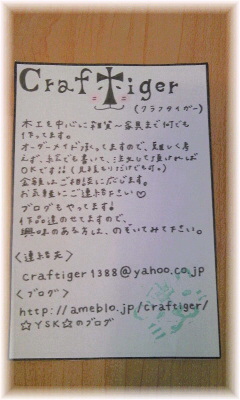 Craftiger
(クラフタイガー)
木工を中心に雑貨〜家具まで何でも
作ってます。
オーダーメイド承ってますので、難しく考
えず、絵でも書いて、注文して頂ければ
OKです!!(見積もりだけでも可。)
金額はご相談に応じます。
お気軽にご連絡下さい♡
ブログもやってます!
作品達のせてますので、
興味のある方は、のぞいてみて下さい。
<連絡先>
craftiger1388@yahoo.co.jp
<ブログ>
http://ameblo.jp/craftiger/
☆YSK☆のブログ